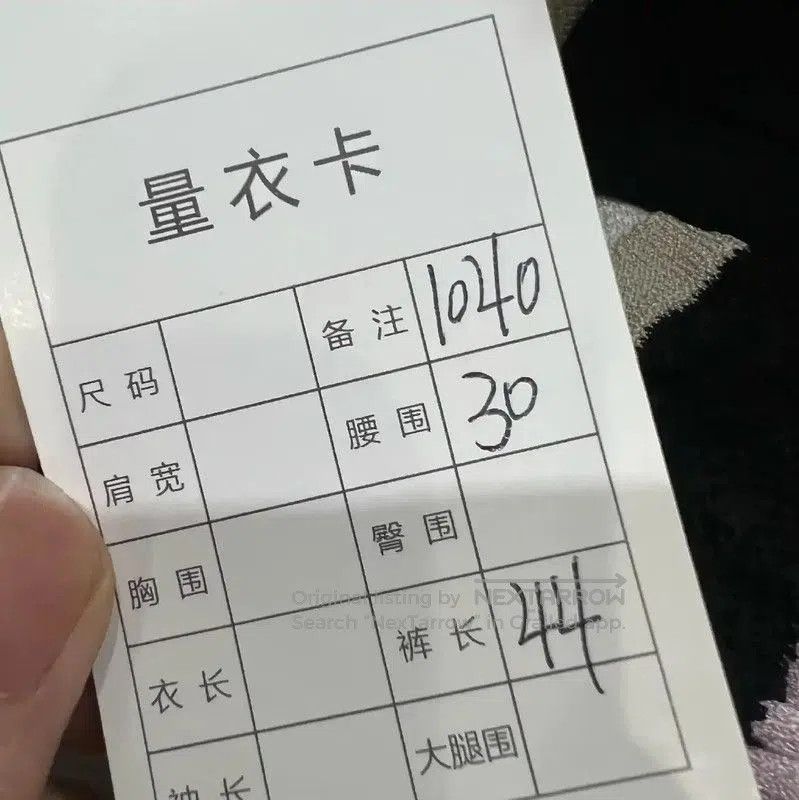 量衣卡
尺码 备注 1040
肩宽 腰围 30
胸围 臀围
衣长 裤长 44
袖长 大腿围
Original listing by NEXTARROW
Search "NexTarrow" in Grailed app.